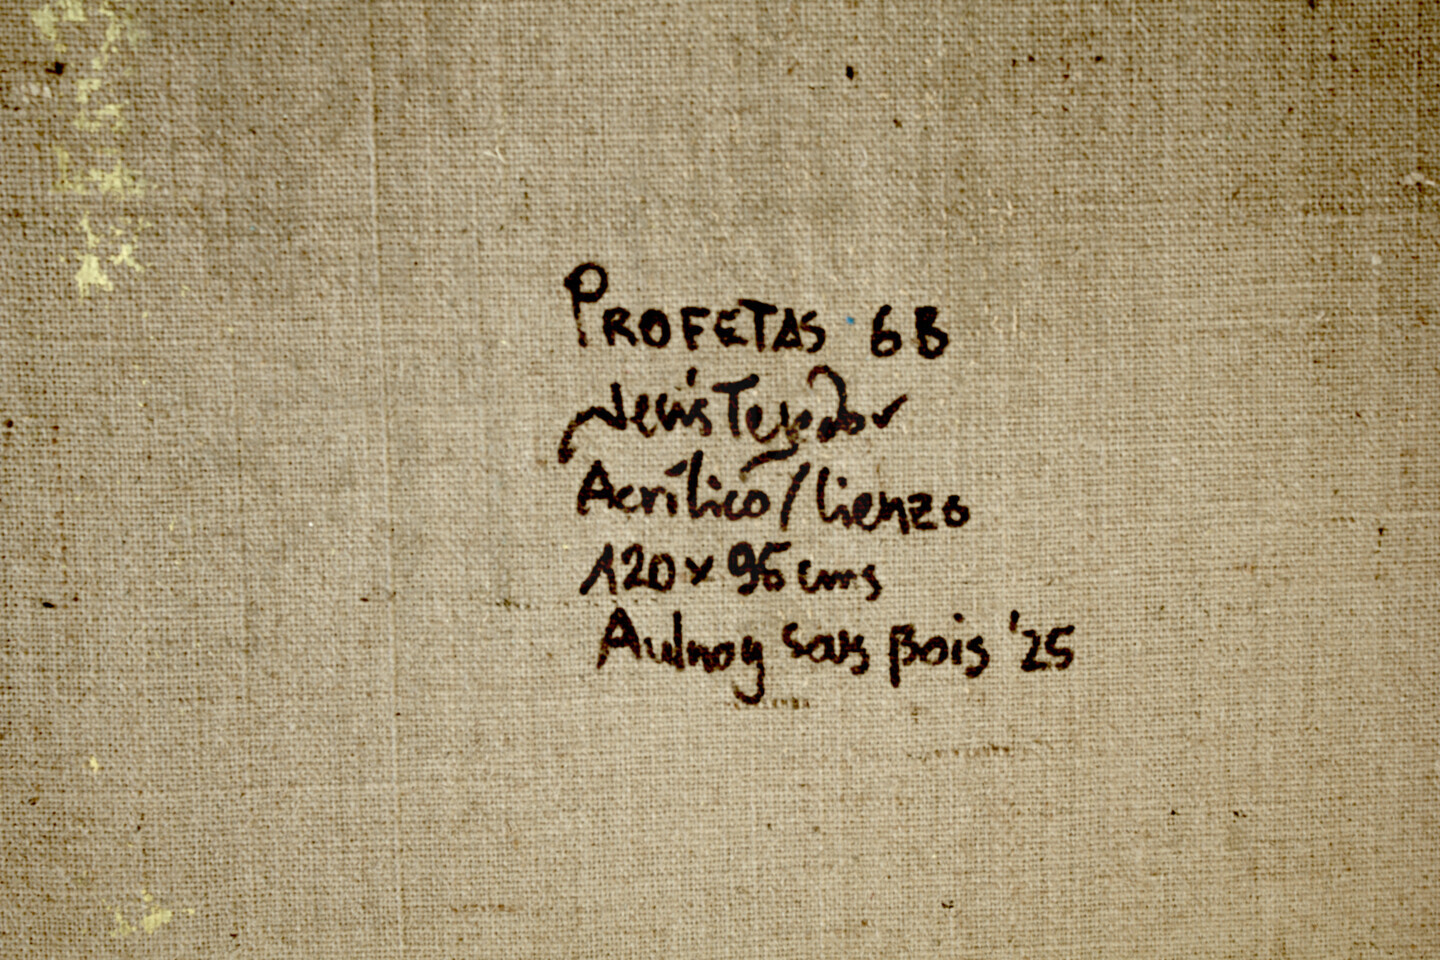 PROFETAS 6B
Jesús Tejedor
Acrílico/lienzo
120 x 96 cms
Aulnay sous Bois '25